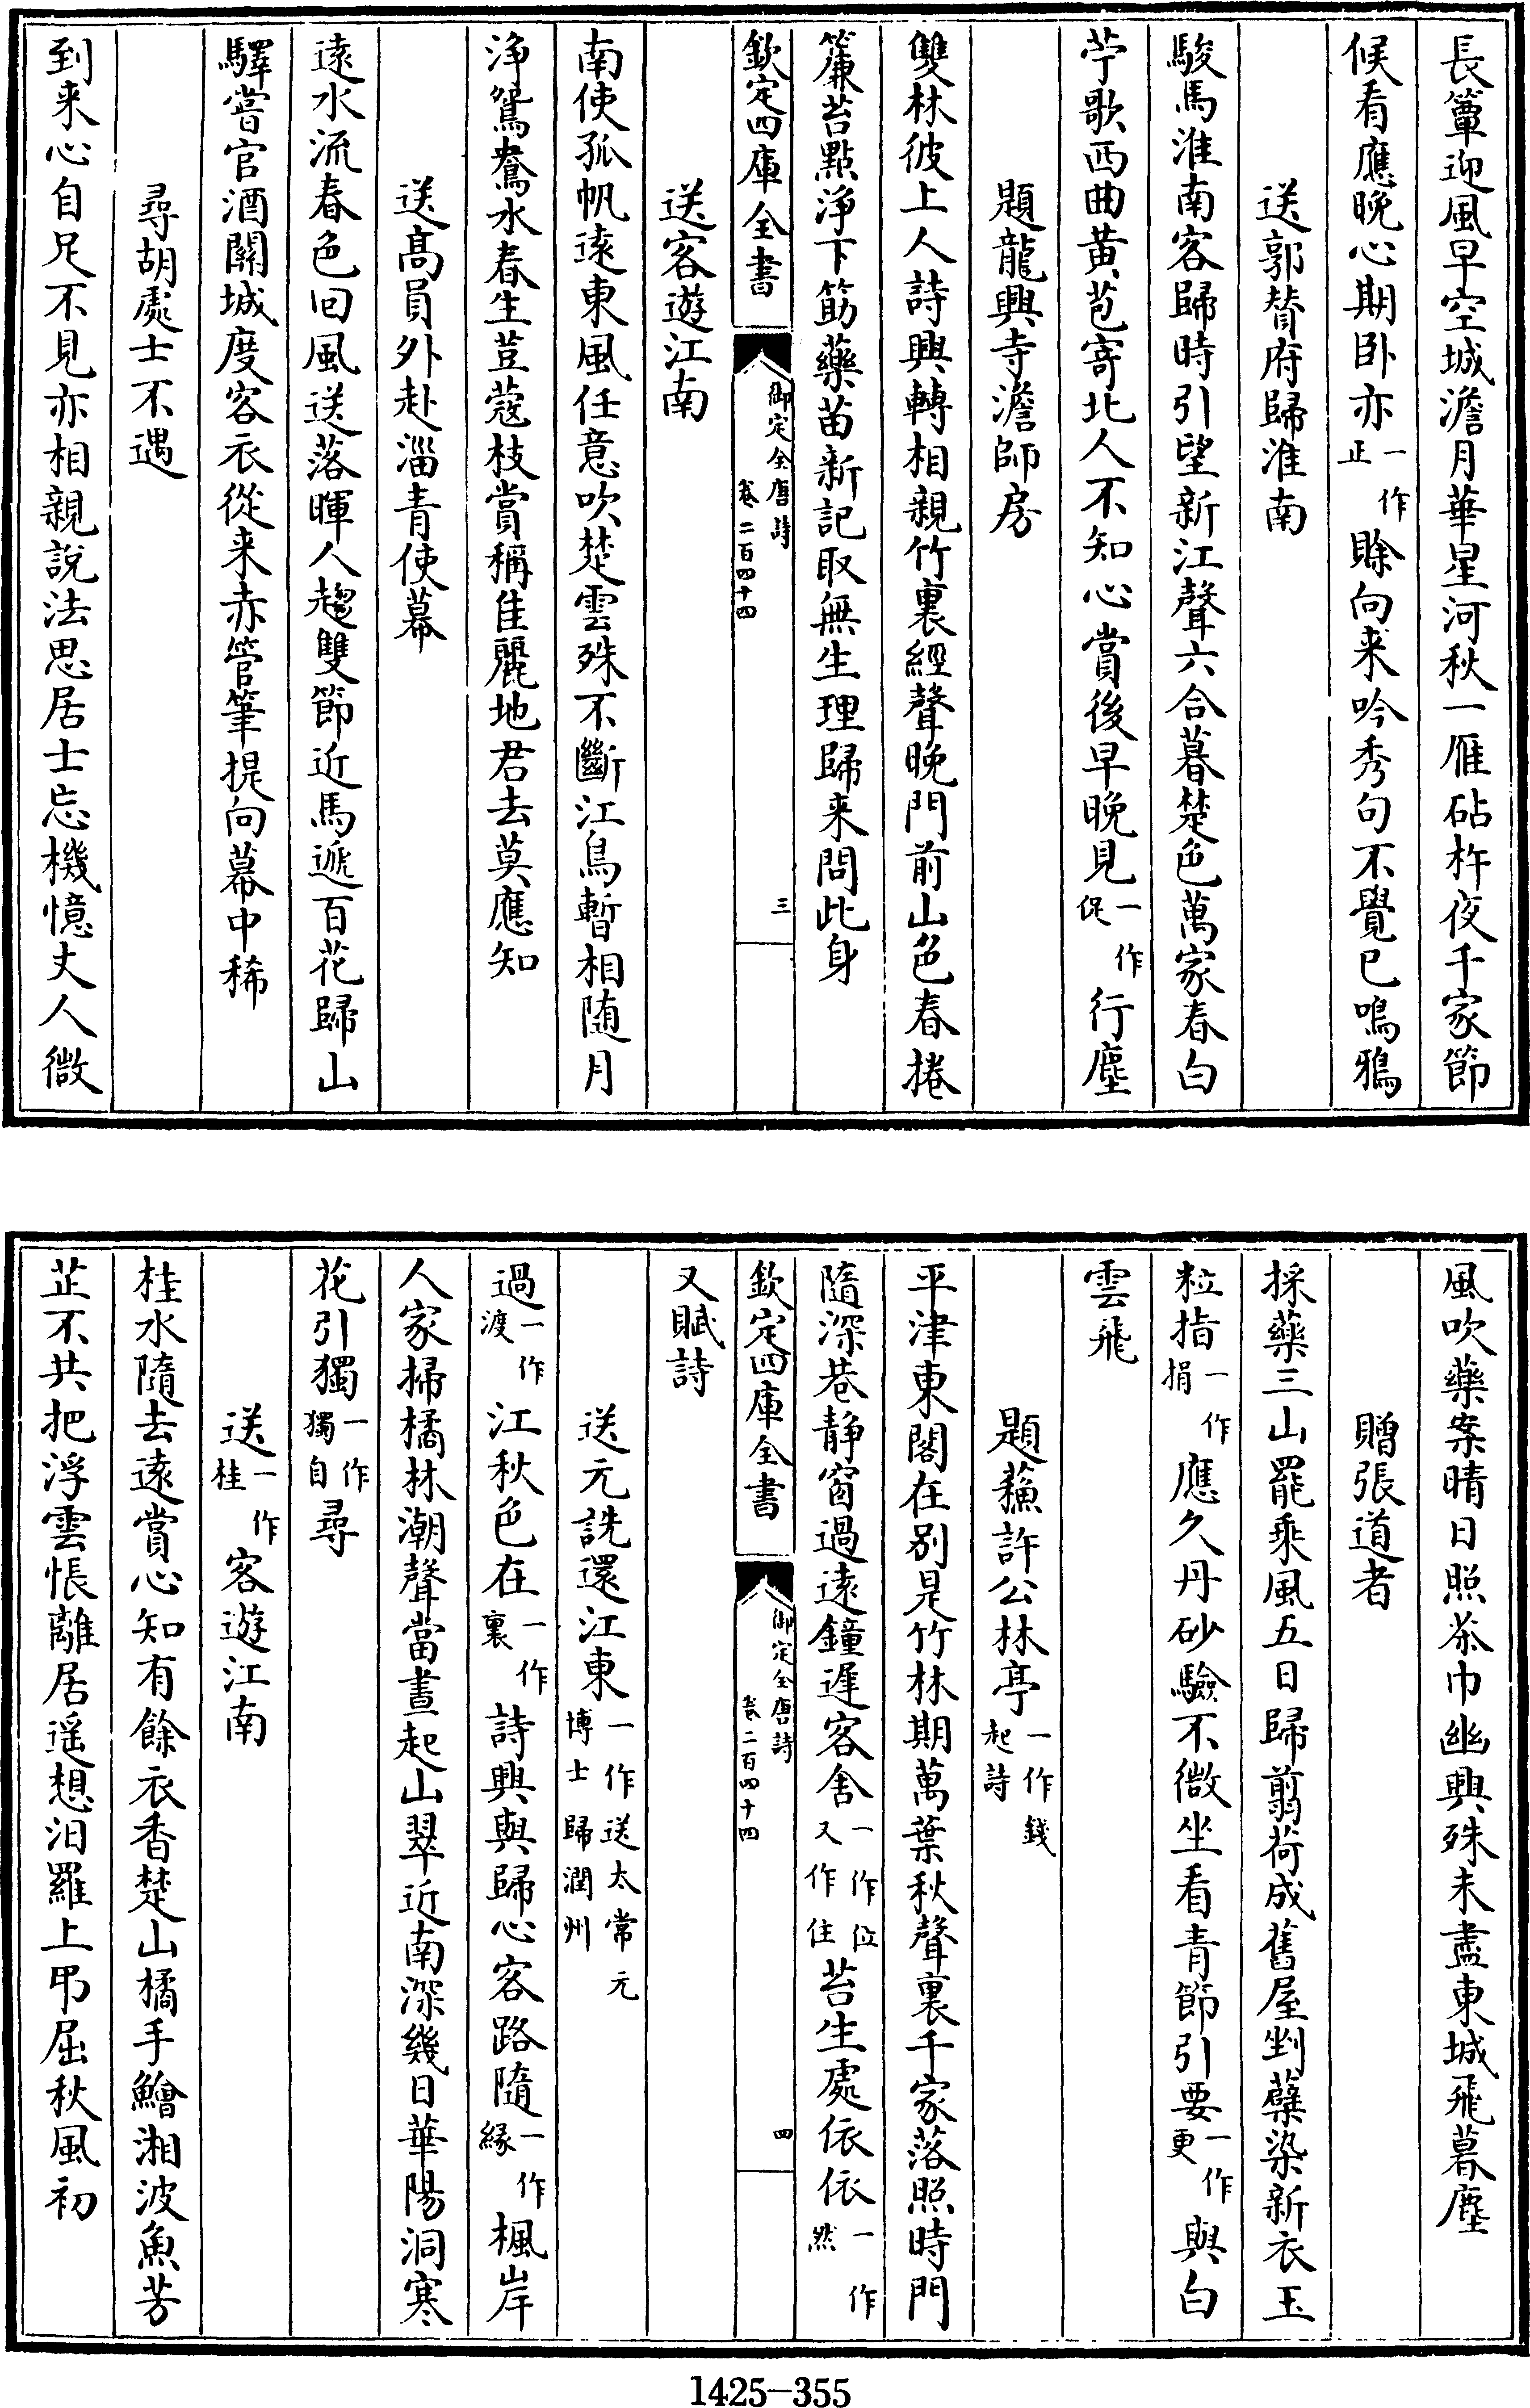 長簟迎風早空城澹月華星河秋一雁砧杵夜千家節
候看應晚心期卧亦一作正賖向来吟秀句不覺已鳴鴉
送郭賛府歸淮南
駿馬淮南客歸時引望新江聲六合暮楚色萬家春白
苧歌西曲黄苞寄北人不知心賞後早晚見一作促行塵
題龍興寺澹師房
雙林彼上人詩興轉相親竹裏經聲晚門前山色春捲
簾苔點淨下筯藥苗新記取無生理歸来問此身
欽定四庫全書
御定全唐詩
卷二百四十四
三
送客遊江南
南使孤帆遠東風任意吹楚雲殊不斷江鳥暫相随月
浄鴛鴦水春生荳蔻枝賞稱佳麗地君去莫應知
送髙員外赴淄青使幕
遠水流春色回風送落暉人趨雙節近馬遞百花歸山
驛嘗官酒關城度客衣從来赤管筆提向幕中稀
尋胡處士不遇
到来心自足不見亦相親說法思居士忘機憶丈人微
風吹藥案晴日照茶巾幽興殊未盡東城飛暮塵
贈張道者
採藥三山罷乘風五日歸翦荷成舊屋剉蘖染新衣玉
粒指一作捐應久丹砂驗不微坐看青節引要一作更與白
雲飛
題蘓許公林亭一作錢起詩
平津東閣在别是竹林期萬葉秋聲裏千家落照時門
隨深巷静窗過遠鐘遲客舍一作位又作住苔生處依依一作然
欽定四庫全書
御定全唐詩
卷二百四十四
四
又賦詩
送元詵還江東一作送太常元博士歸潤州
過一作渡江秋色在一作裏詩興與歸心客路隨一作縁楓岸
人家掃橘林潮聲當晝起山翠近南深幾日華陽洞寒
花引獨一作獨自尋
送一作桂客遊江南
桂水隨去遠賞心知有餘衣香楚山橘手鱠湘波魚芳
芷不共把浮雲悵離居遥想汨羅上弔屈秋風初
1425-355